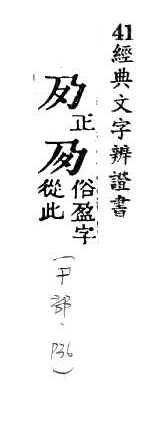 41經典文字辨證書
夃正
俗盈字
從此
部.P36)